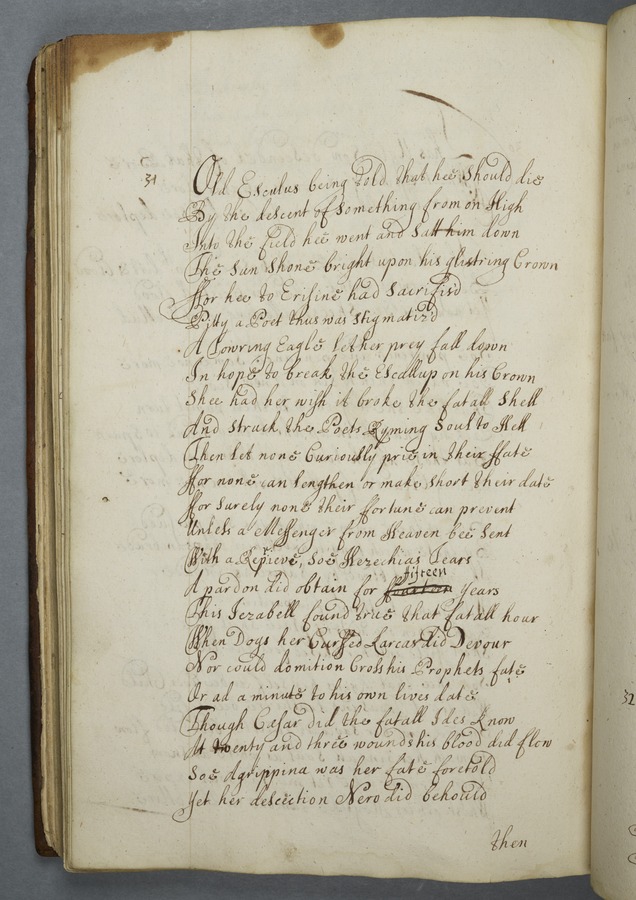 31
Old Esculus being told that hee should die
By the descent of something from on High
Into the field hee went and satt him down
The Sun Shone bright upon his glistring Crown
ffor hee to Erisine had Sacrifisd
Pitty a Poet thus was stigmatiz'd
A Towring Eagle let her prey fall down
In hope to break the Escallup on his Crown
Shee had her wish it broke the fatall Shell
And struck the Poets Ryming Soul to Hell
Then let none Curiously prie in their ffate
ffor none can lengthen or make short their date
ffor surely none their ffortune can prevent
Unless a Messenger from Heaven bee sent
With a Repieve, soe Hezechias Tears
fifteen
A pardon did obtain for years
This Jezabell found true that fatall hour
When Dogs her Cursed Carcas did Devour
Nor could domition Cross his Prophets fate
Or ad a minute to his own lives date
Though Cæsar did the fatall Ides know
At twenty and three wounds his blood did flow
Soe Agrippina was her fate foretold
Yet her desection Nero did behould
then
32